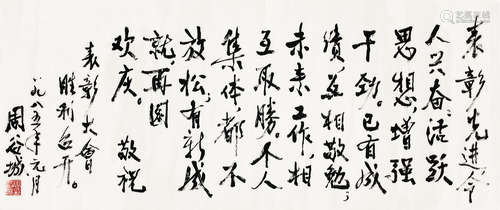 表彰先进令
人兴奋，活跃
思想，增强
干劲。已有成
绩，相敬勉，
未来工作，相
互取勝。个人
集体，都不
放松，有新成
就，再图
欢庆。 敬祝
表彰大會
胜利召开。
一九八五年元月
周谷城